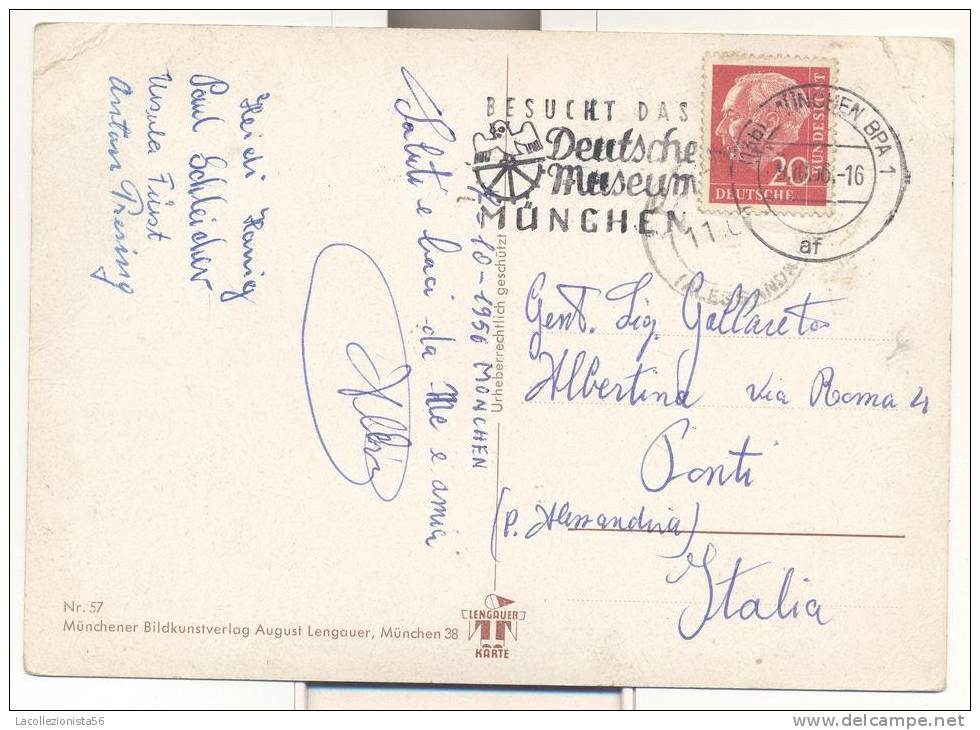 Heidi Konig
Paul Schleicher
Ursula Fürst
Anton Presing
Saluti e baci da Me e amici
7-10-1956 MONCHEN
BESUCHT DAS
Deutsche
Museum
MÜNCHEN
MÜNCHEN BPA 1
-16
af
11
ALESSANDR
20
DEUTSCHE
BUNDESPOST
Urheberrechtlich geschützt
Gent. Sig. Gallareto
Albertina Via Roma 4
Ponti
(P. Alessandria)
Italia
Nr. 57
Münchener Bildkunstverlag August Lengauer, München 38
LENGAUER
KARTE
Lacollezionista56
delcampe.net